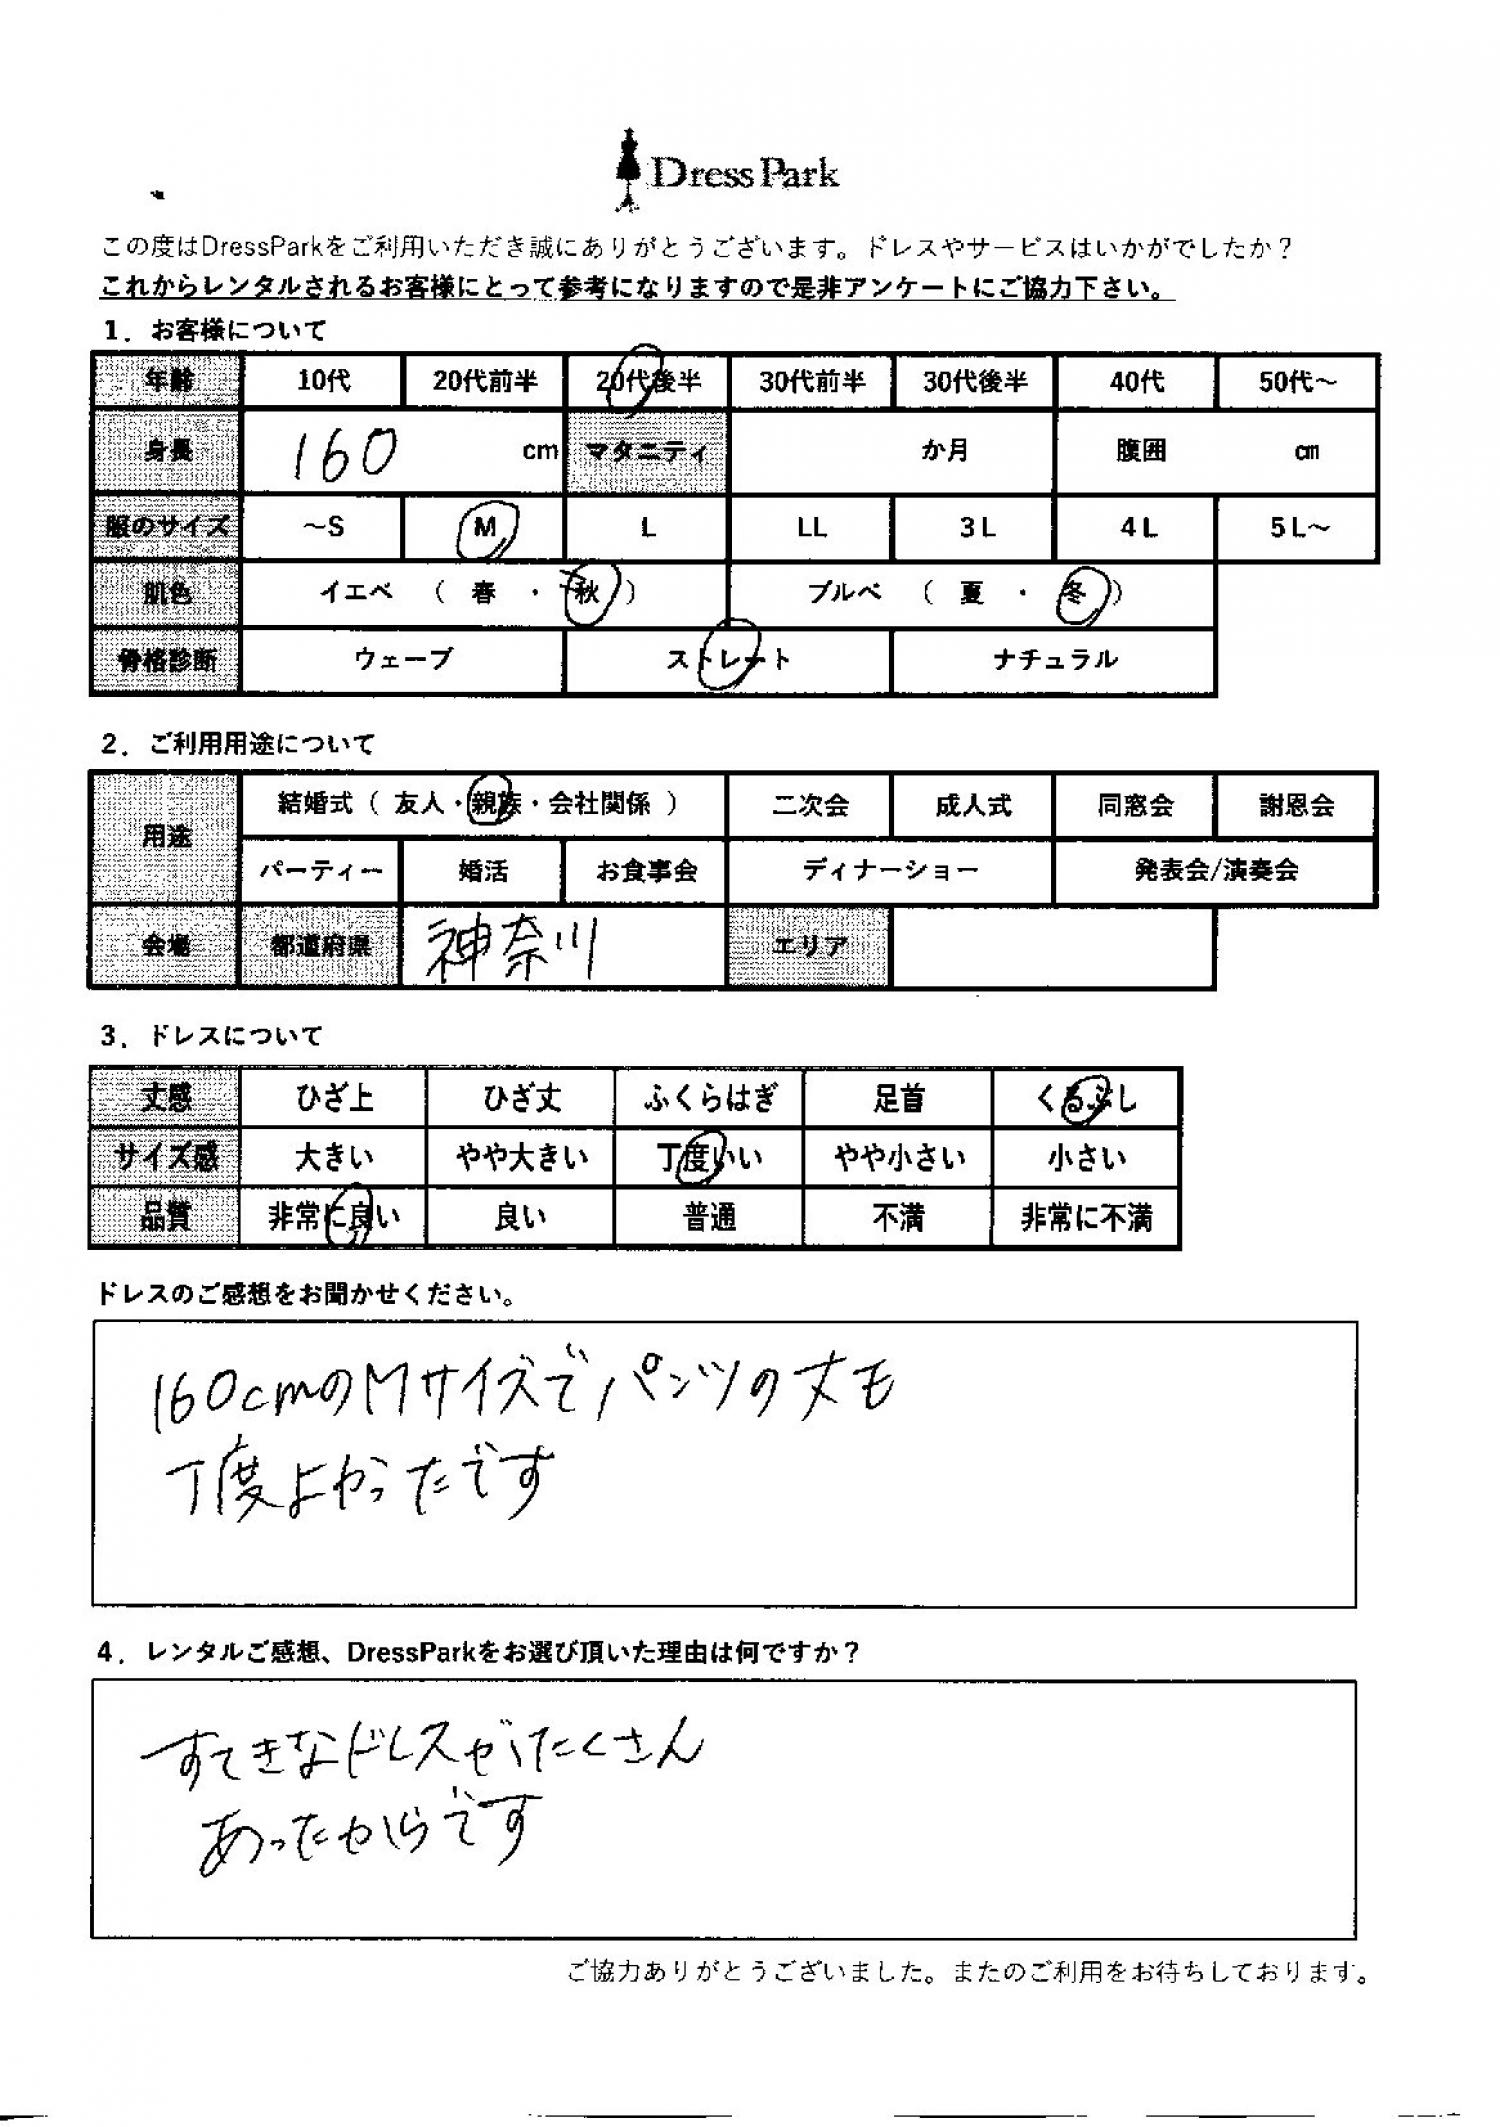 Dress Park
この度はDressParkをご利用いただき誠にありがとうございます。ドレスやサービスはいかがでしたか？
これからレンタルされるお客様にとって参考になりますので是非アンケートにご協力下さい。
1．お客様について
年齢 10代 20代前半 20代後半 30代前半 30代後半 40代 50代～
身長 160 cm マタニティ か月 腹囲 cm
服のサイズ ～S M L LL 3L 4L 5L～
肌色 イエベ （ 春 ・ 秋 ） ブルベ （ 夏 ・ 冬 ）
骨格診断 ウェーブ ストレート ナチュラル
2．ご利用用途について
用途 結婚式（ 友人・親族・会社関係 ） 二次会 成人式 同窓会 謝恩会
パーティー 婚活 お食事会 ディナーショー 発表会/演奏会
会場 都道府県 神奈川 エリア
3．ドレスについて
丈感 ひざ上 ひざ丈 ふくらはぎ 足首 くるぶし
サイズ感 大きい やや大きい 丁度いい やや小さい 小さい
品質 非常に良い 良い 普通 不満 非常に不満
ドレスのご感想をお聞かせください。
160cmのMサイズでパンツの丈も
丁度よかったです
4．レンタルご感想、DressParkをお選び頂いた理由は何ですか？
すてきなドレスがたくさん
あったからです
ご協力ありがとうございました。またのご利用をお待ちしております。